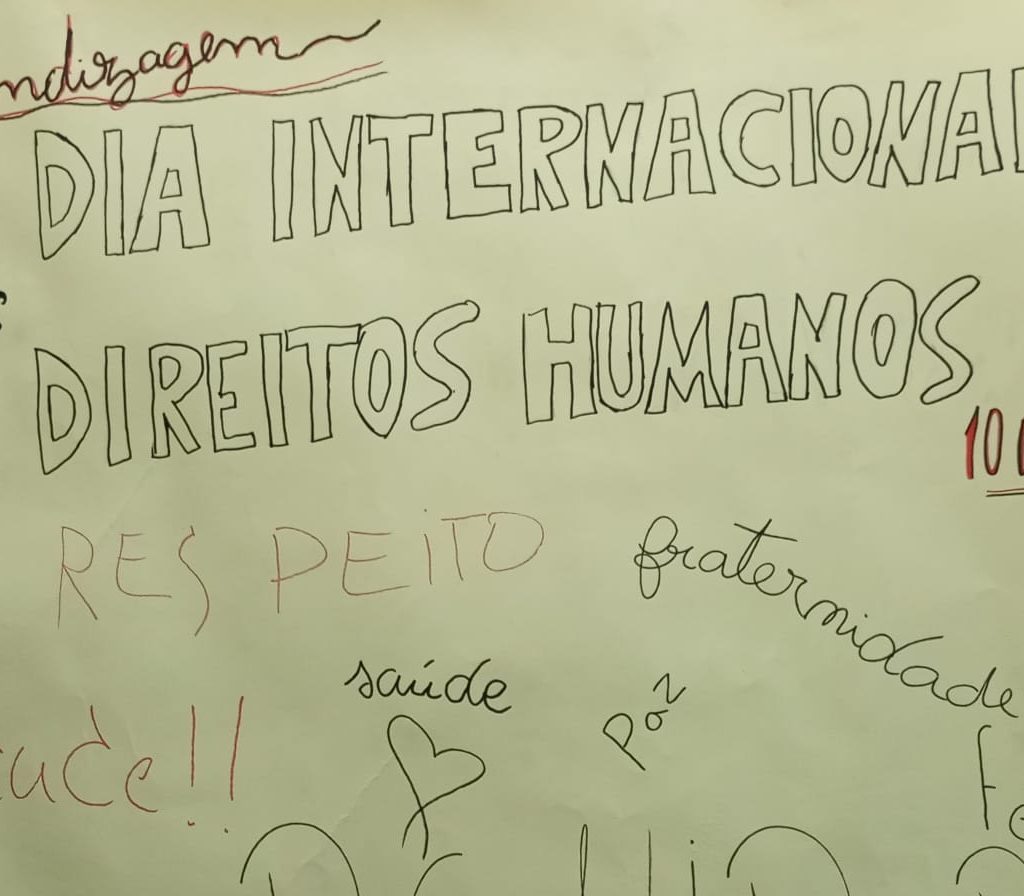 ndizagem
DIA INTERNACIONAL
DIREITOS HUMANOS
10
RESPEITO
fraternidade
saúde
Paz